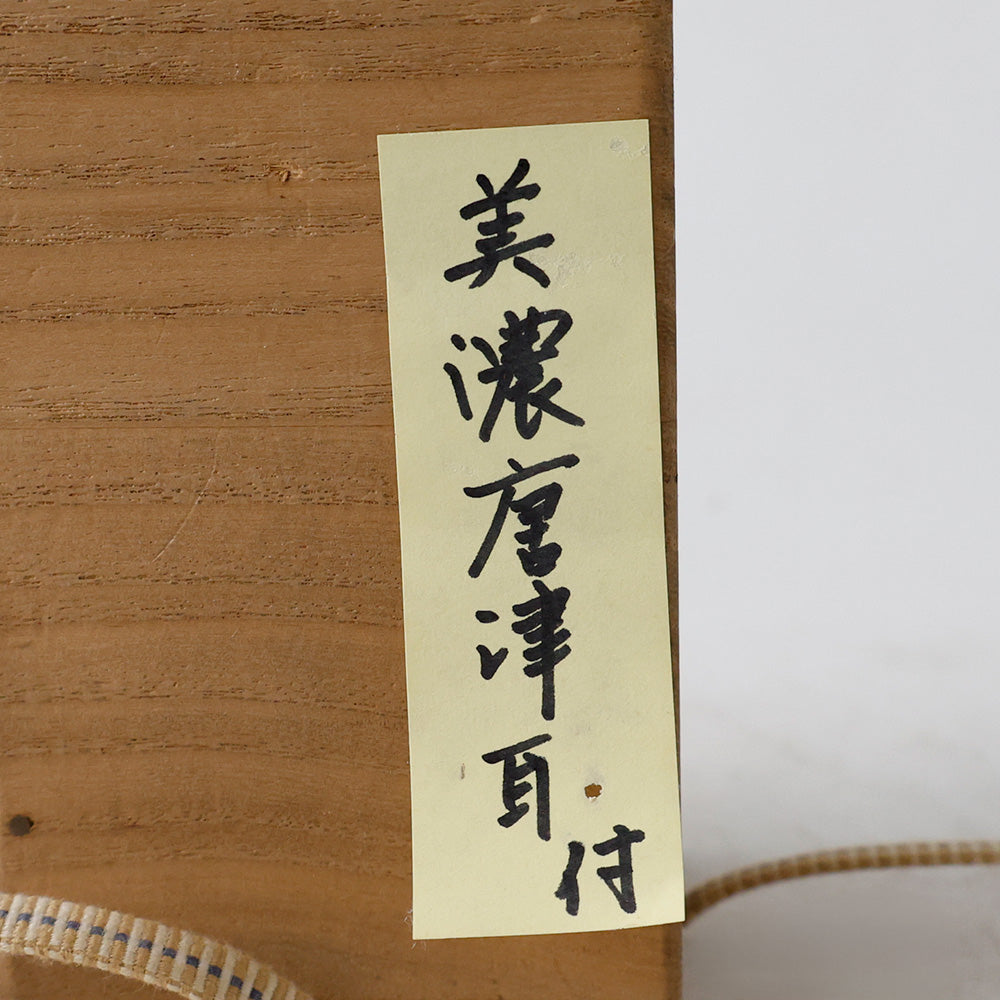 美濃唐津耳付